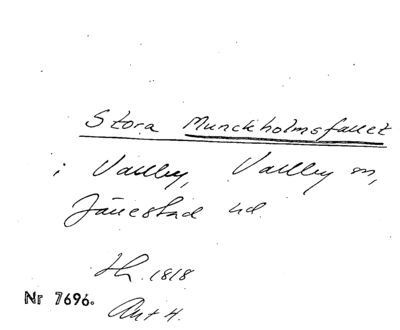 Stora Munckholmsfallet
i Vallby, Vallby sn,
Järrestad hd.
Th. 1818
Nr 7696.
Ant 4.